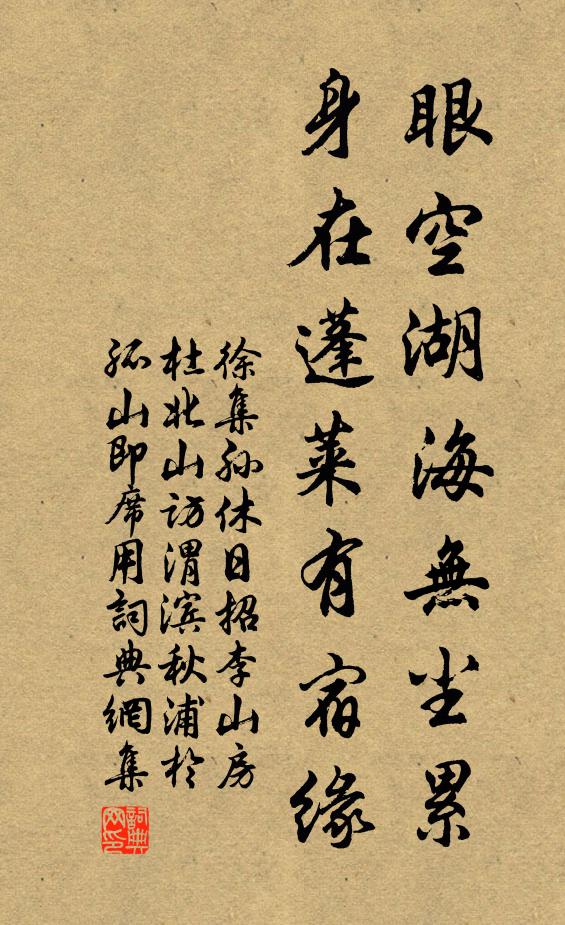 眼空湖海無尘累
身在蓬莱有宿缘
徐集孙休日招李山房
杜北山访渭滨秋浦於
孤山即席用詞典網集
詞典
网印